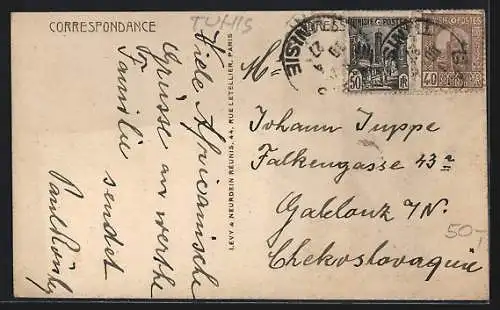 CORRESPONDANCE
TUNIS
Viele Africanische
Grüsse an werthe
Familie sendet
LEVY & NEURDEIN REUNIS, 44, RUE LETELLIER, PARIS
POSTES
50
40
Mr
Johann Juppe
Falkengasse 43a
Gablonz a/N.
Chekoslovaquie
50-